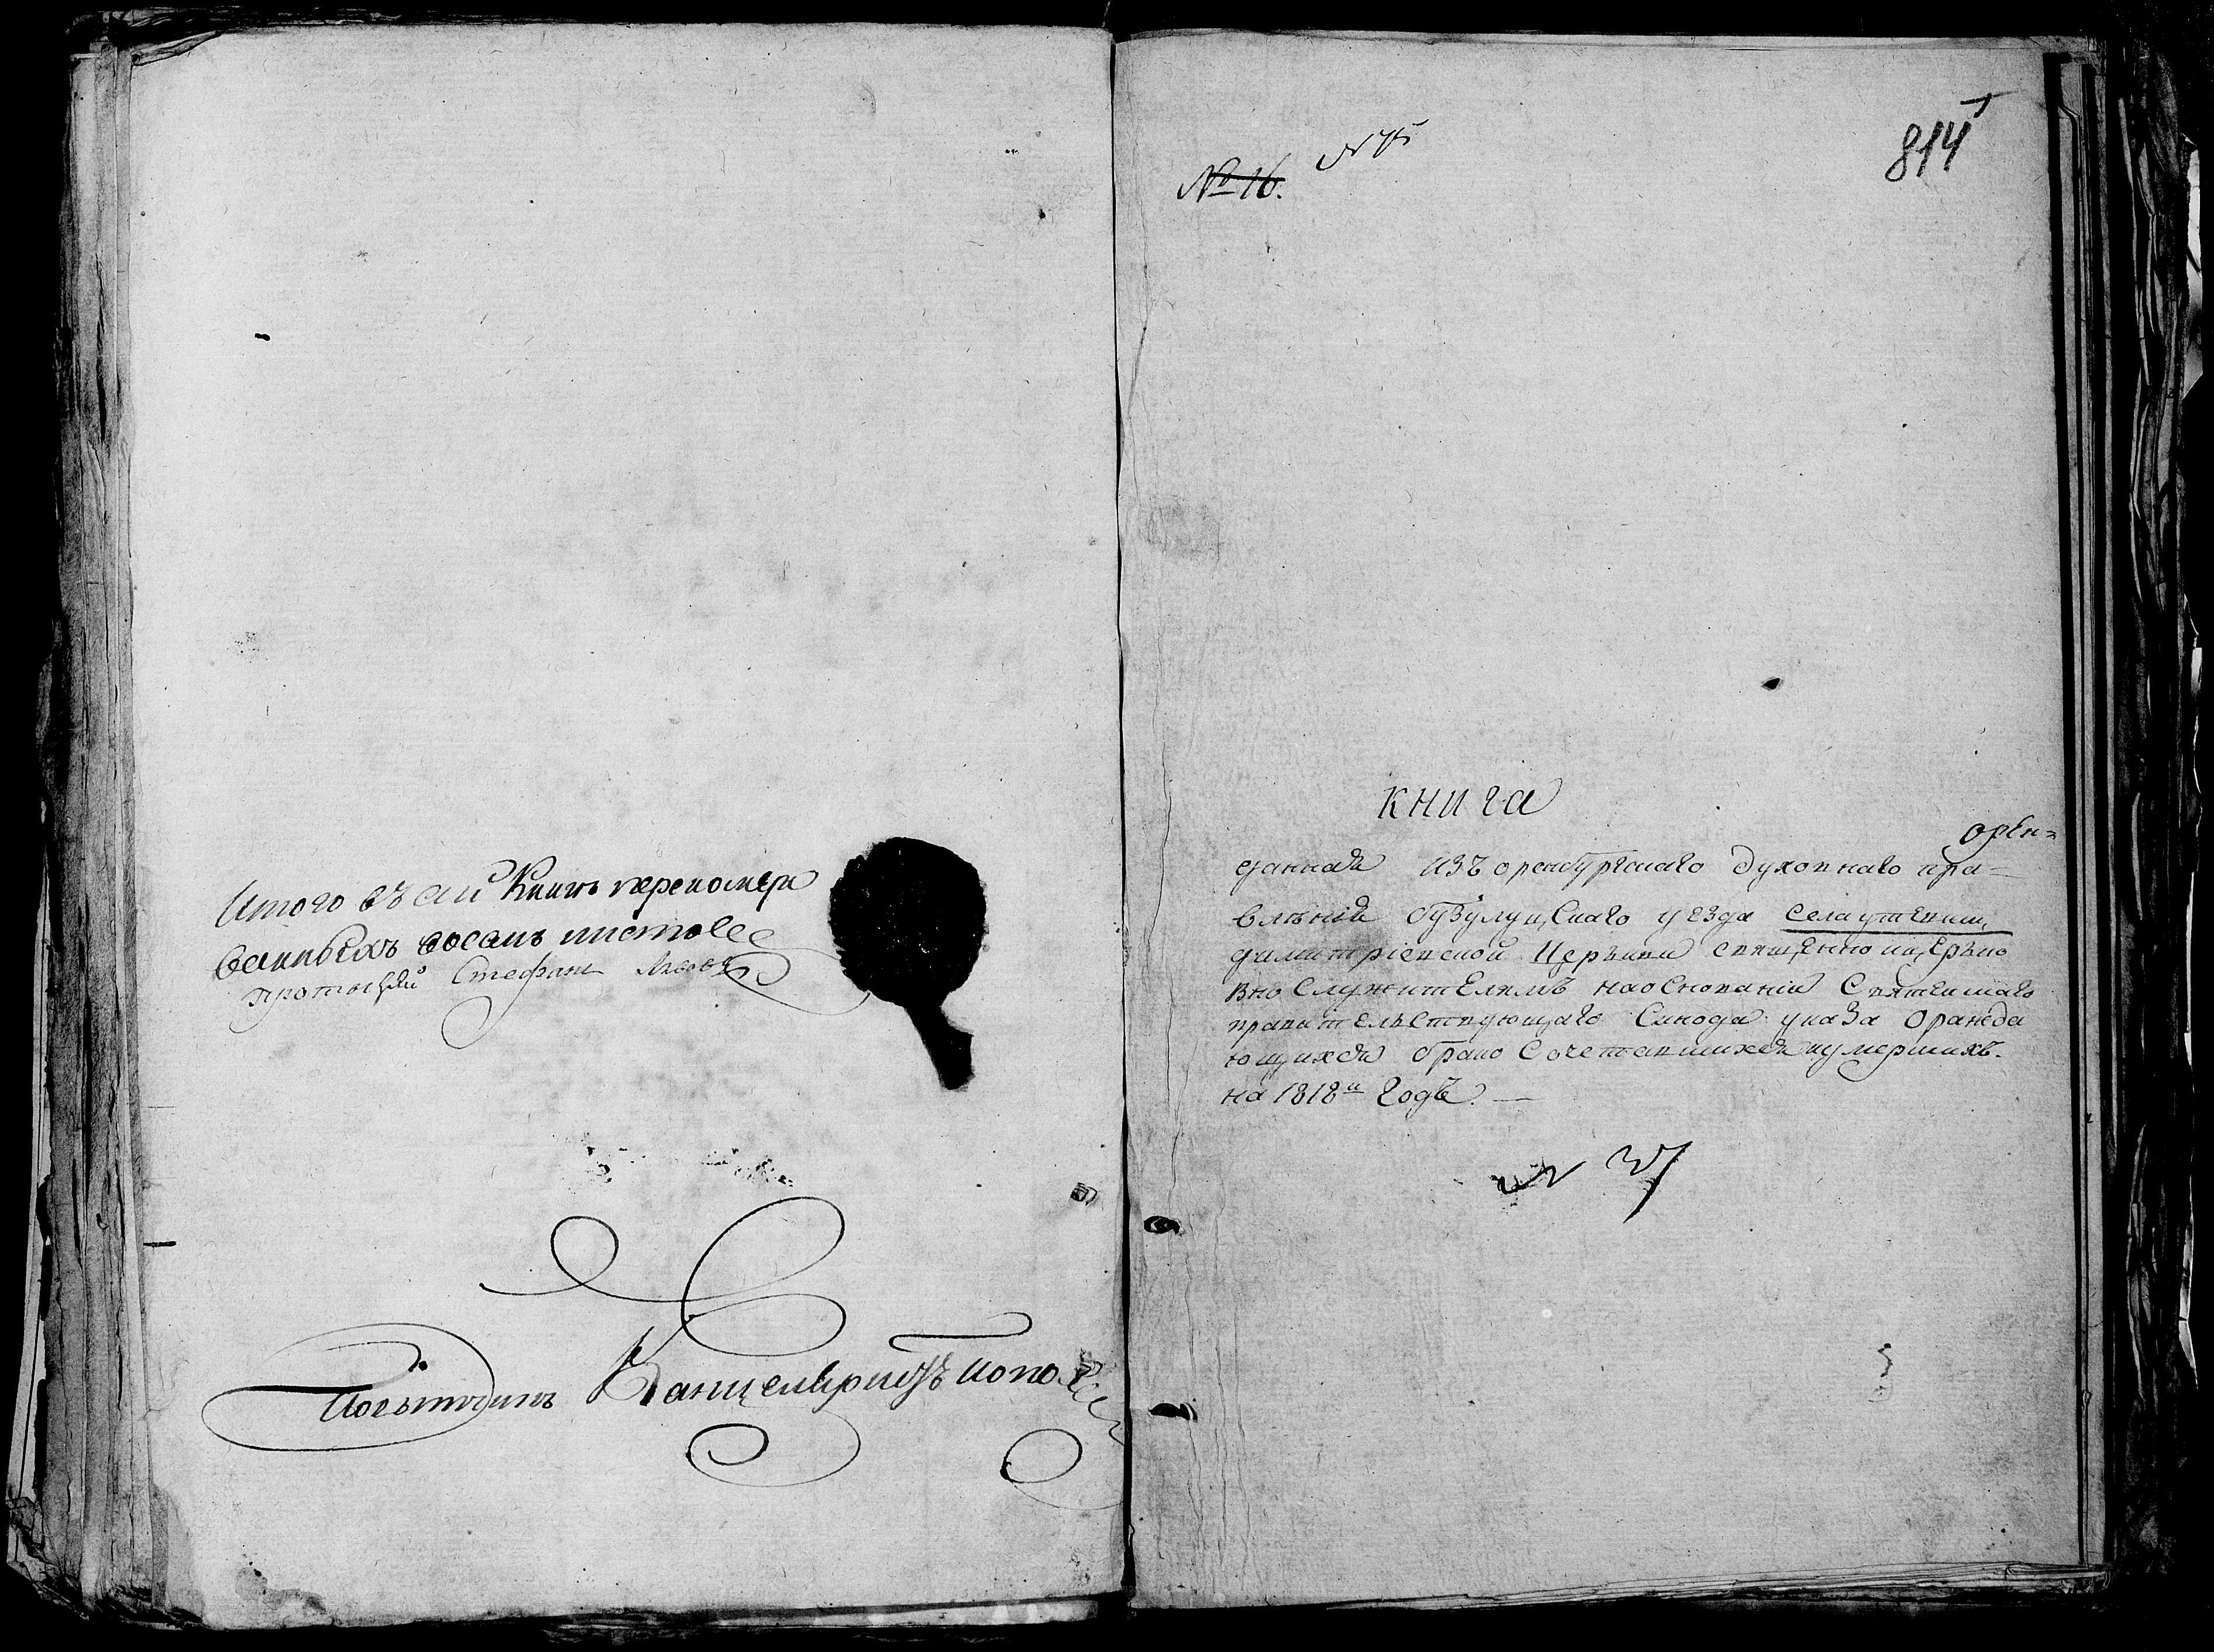 Итого въ сей Книги перенумеро
ванныхъ восемь листовъ
протоіерей Стефанъ
Канцеляристъ
№ 16.
814
книга
Орен=
данная изъ оренбургскаго духовнаго пра-
вленія бузулуцскаго уезда села утевки,
димитріевской Церькви священно ицерько
вно Служителямъ наоснованіи Святейшаго
правительствующаго Синода указа Оражда
ющихся брако Сочетавшихся иумершихъ.
на 1818й Годъ. —
№ 37